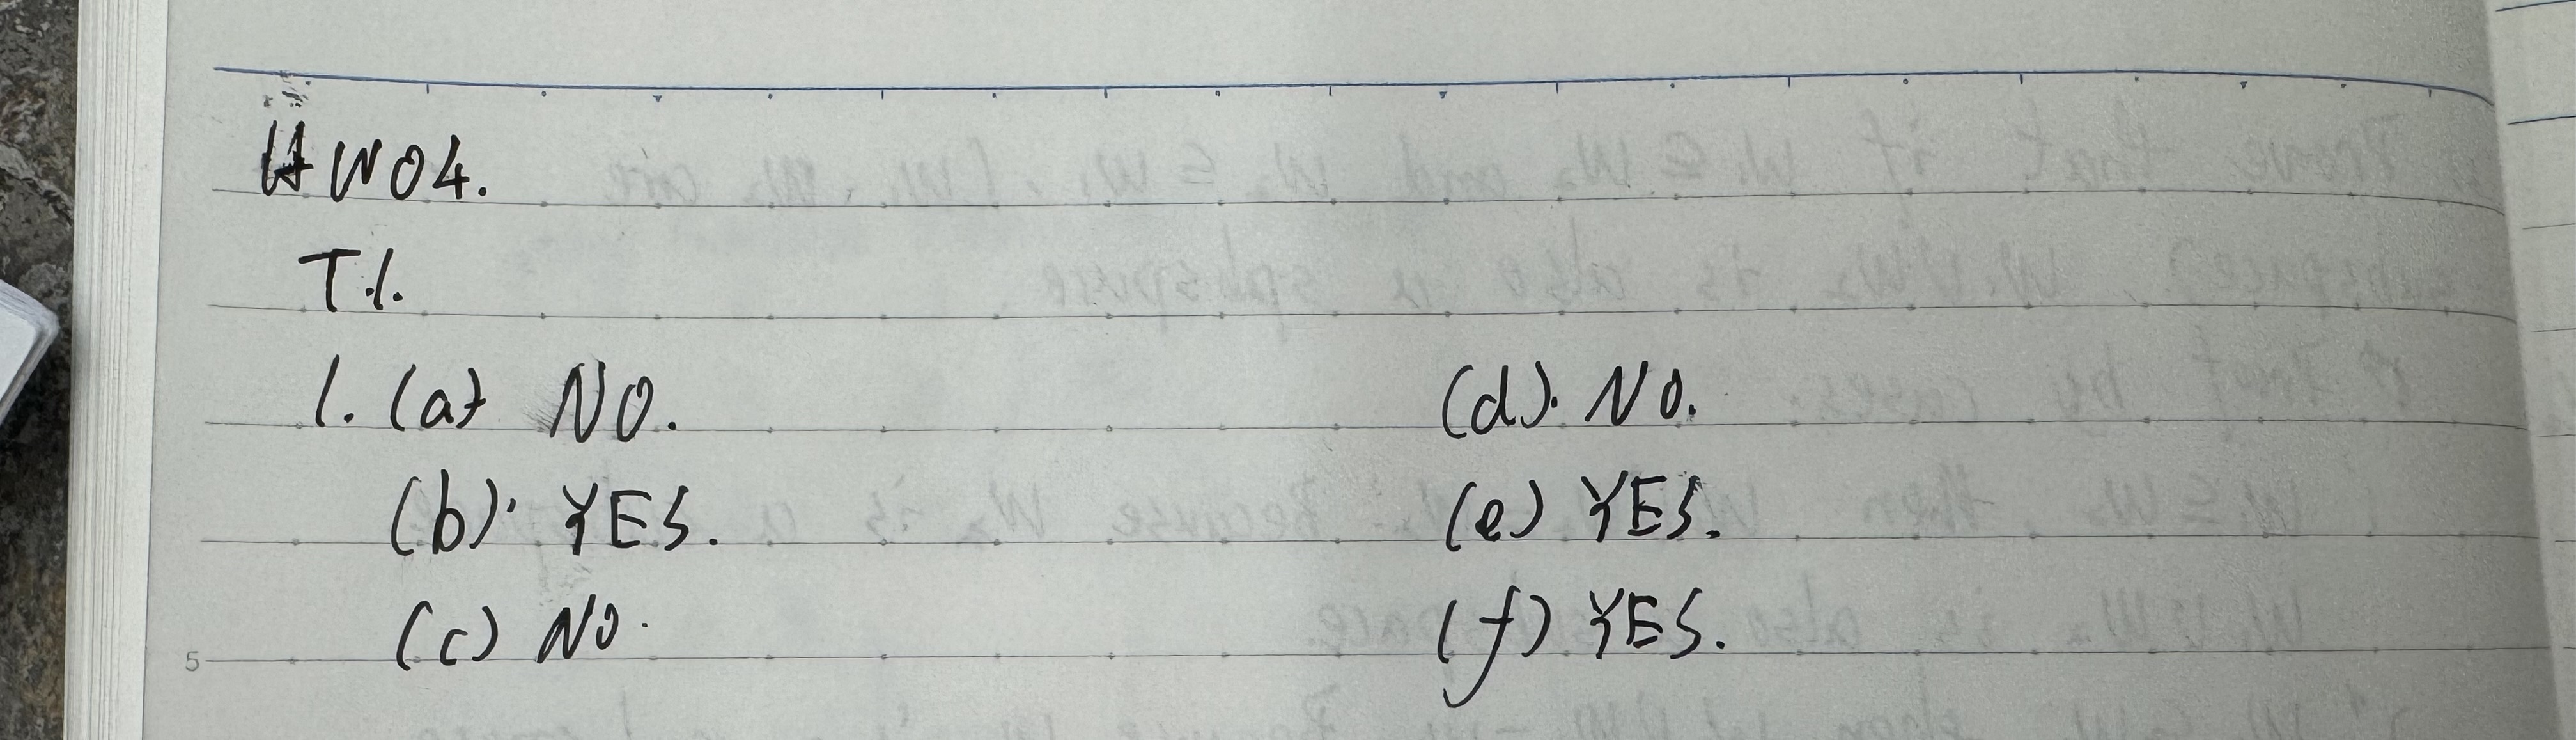 HW04.
T1.
1. (a) NO.
(b). YES.
(c) NO.
(d). NO.
(e) YES.
(f) YES.
5